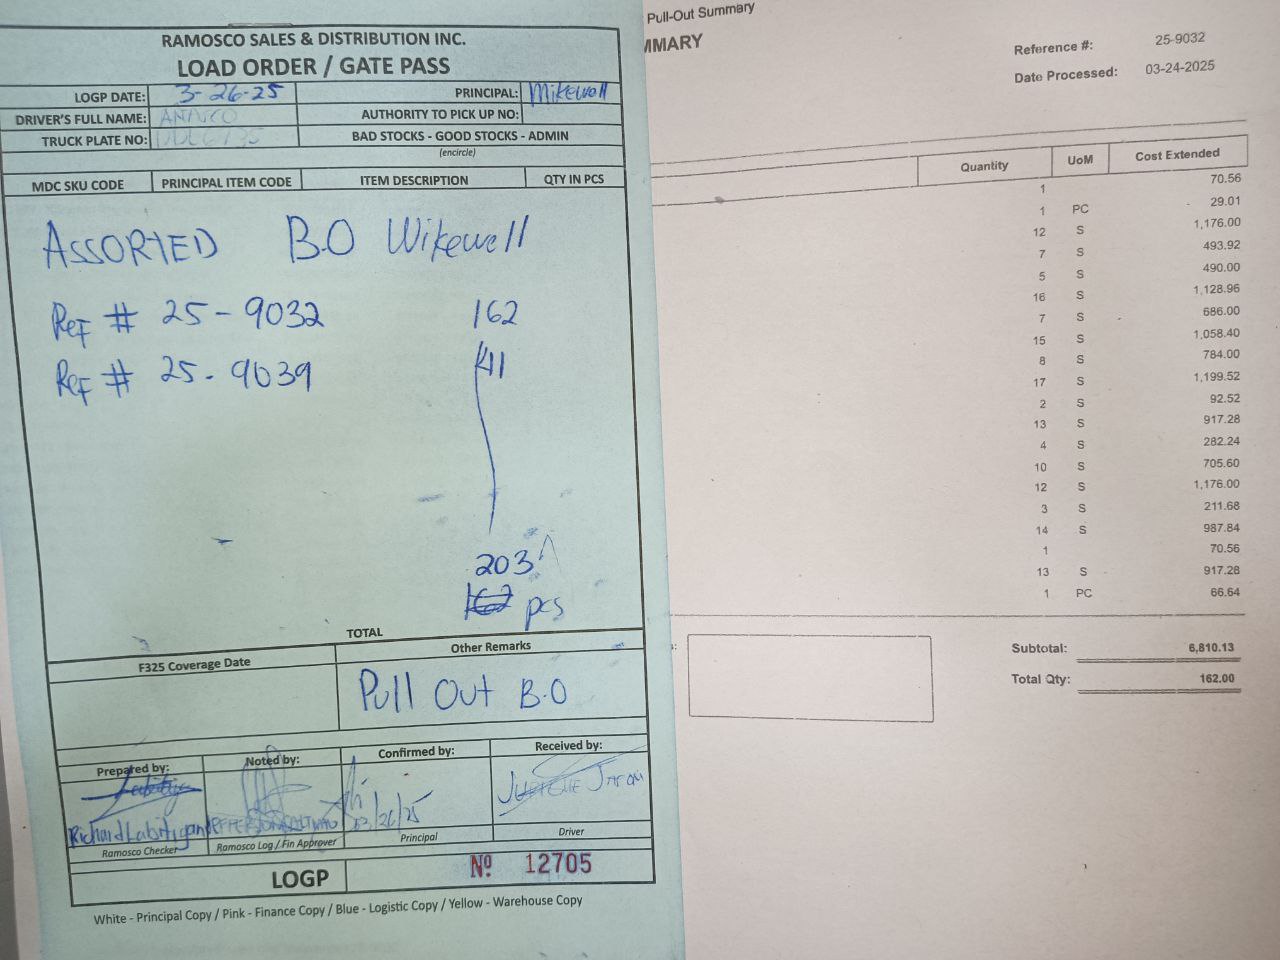 RAMOSCO SALES & DISTRIBUTION INC.
LOAD ORDER / GATE PASS
LOGP DATE: 3-26-25 PRINCIPAL: Mikewell
DRIVER'S FULL NAME: AUTHORITY TO PICK UP NO:
TRUCK PLATE NO: BAD STOCKS - GOOD STOCKS - ADMIN
(encircle)
MDC SKU CODE PRINCIPAL ITEM CODE ITEM DESCRIPTION QTY IN PCS
ASSORTED B.O Wikewell
Ref # 25-9032 162
Ref # 25-9039 41
203
pcs
TOTAL
F325 Coverage Date Other Remarks
Pull Out B.O
Prepared by: Noted by: Confirmed by: Received by:
Richard Labitigan 03/26/25
Ramosco Checker Ramosco Log / Fin Approver Principal Driver
LOGP Nº 12705
White - Principal Copy / Pink - Finance Copy / Blue - Logistic Copy / Yellow - Warehouse Copy
Pull-Out Summary
MMARY
Reference #: 25-9032
Date Processed: 03-24-2025
Quantity UoM Cost Extended
1 70.56
1 PC 29.01
12 S 1,176.00
7 S 493.92
5 S 490.00
16 S 1,128.96
7 S 686.00
15 S 1,058.40
8 S 784.00
17 S 1,199.52
2 S 92.52
13 S 917.28
4 S 282.24
10 S 705.60
12 S 1,176.00
3 S 211.68
14 S 987.84
1 70.56
13 S 917.28
1 PC 66.64
Subtotal: 6,810.13
Total Qty: 162.00